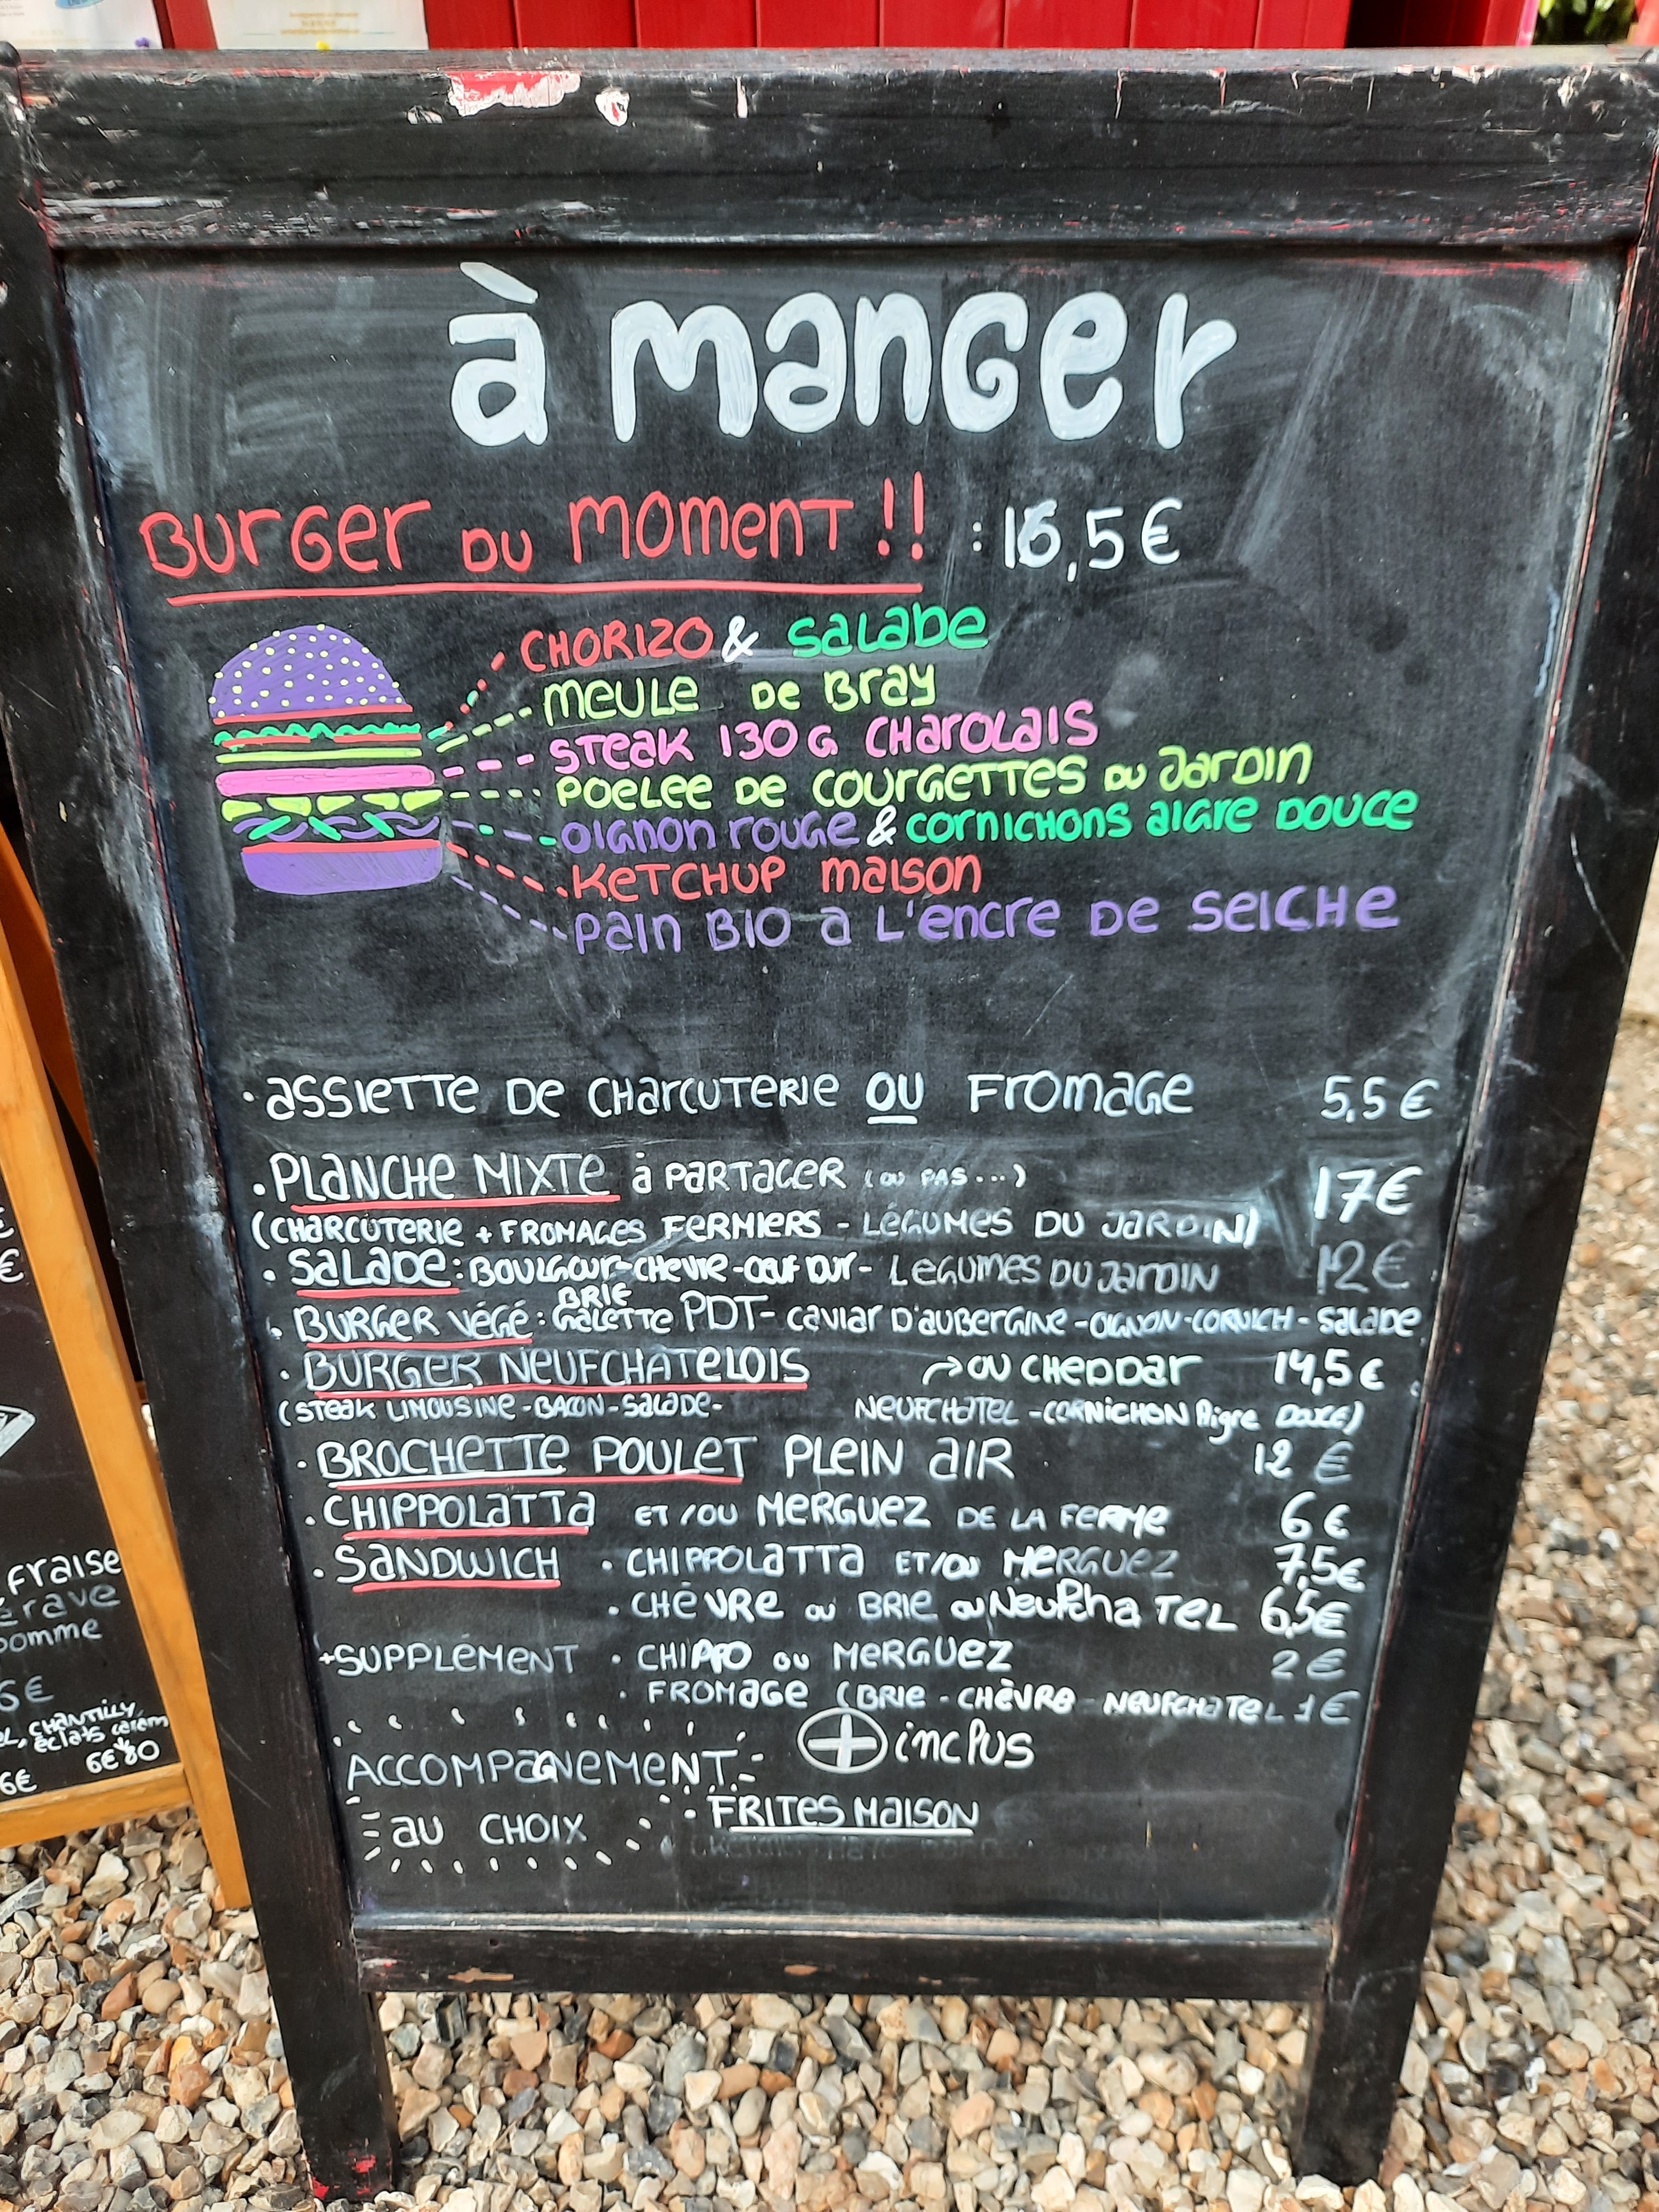 à manger
BURGER DU MOMENT !! : 16,5 €
CHORIZO & SALADE
MEULE DE BRAY
STEAK 130 G CHAROLAIS
POELEE DE COURGETTES DU JARDIN
OIGNON ROUGE & CORNICHONS AIGRE DOUCE
KETCHUP MAISON
PAIN BIO A L'ENCRE DE SEICHE
· ASSIETTE DE CHARCUTERIE OU FROMAGE 5,5 €
· PLANCHE MIXTE à PARTAGER (OU PAS...) 17€
(CHARCUTERIE + FROMAGES FERMIERS - LÉGUMES DU JARDIN)
· SALADE : BOULGOUR-CHEVRE-OEUF DUR- LEGUMES DU JARDIN 12€
BRIE
· BURGER VÉGÉ : GALETTE PDT- CAVIAR D'AUBERGINE -OIGNON-CORNICH- SALADE
· BURGER NEUFCHATELOIS OU CHEDDAR 14,5 €
(STEAK LIMOUSINE -BACON-SALADE- NEUFCHATEL -CORNICHON Aigre DOUCE)
· BROCHETTE POULET PLEIN AIR 12 €
· CHIPPOLATTA ET/OU MERGUEZ DE LA FERME 6€
· SANDWICH · CHIPPOLATTA ET/OU MERGUEZ 7,5€
· CHÈVRE OU BRIE OU NEUFCHATEL 6,5€
+SUPPLÉMENT · CHIPPO OU MERGUEZ 2€
· FROMAGE (BRIE - CHÈVRE NEUFCHATEL 1€
ACCOMPAGNEMENT + inclus
AU CHOIX - FRITES MAISON
FRAISE
6€
CHANTILLY,
6€80
6€